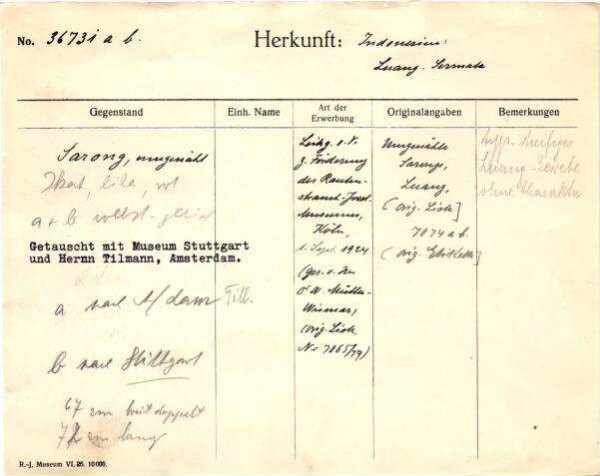 No. 36731 a b.
Herkunft: Indonesien:
Luang-Sermata
Gegenstand
Einh. Name
Art der
Erwerbung
Originalangaben
Bemerkungen
Sarong, umgenäht
Ikat, lila, rot
a + b selbst-gleich
Getauscht mit Museum Stuttgart
und Herrn Tilmann, Amsterdam.
a nach A/dam Till.
b nach Stuttgart
67 cm breit doppelt
72 cm lang
Leihg. d. V.
z. Förderung
des Rauten-
strauch-Joest
Museums,
Köln,
1. Sept. 1924
(ges. v. Dr.
W. Müller-
Wismar,
orig. Liste
Nr 7065/79)
Umgenähte
Sarongs,
Luang,
(orig. Liste]
7074 a b.
(orig. Etikette]
typ. streifiges
Luang-Gewebe
ohne Charakter
R.-J. Museum VI. 26. 10000.